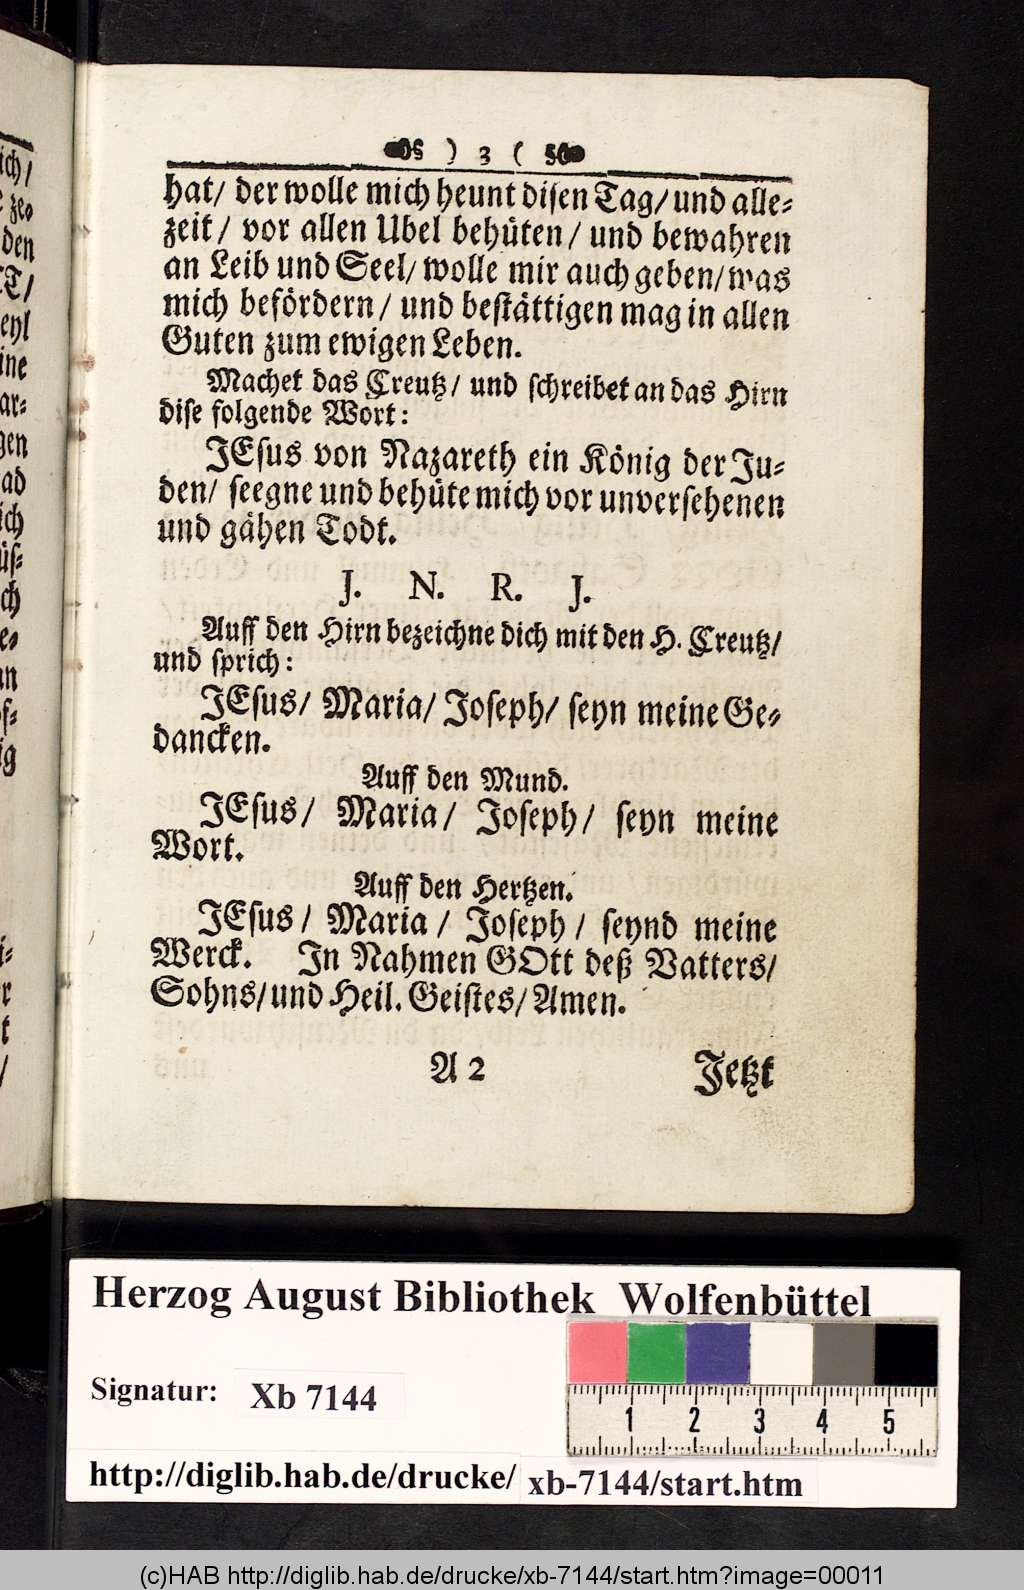 ich/
ze-
den
T/
eyl
ine
ar-
gen
ad
ich
üs-
ch
e-
an
os-
ig
i-
r
t
/
) 3 (
hat/ der wolle mich heunt disen Tag/ und alle-
zeit/ vor allen Ubel behüten/ und bewahren
an Leib und Seel/ wolle mir auch geben/ was
mich befördern/ und bestättigen mag in allen
Guten zum ewigen Leben.
Machet das Creutz/ und schreibet an das Hirn
dise folgende Wort:
JEsus von Nazareth ein König der Ju-
den/ seegne und behüte mich vor unversehenen
und gähen Todt.
J. N. R. J.
Auff den Hirn bezeichne dich mit den H. Creutz/
und sprich:
JEsus/ Maria/ Joseph/ seyn meine Ge-
dancken.
Auff den Mund.
JEsus/ Maria/ Joseph/ seyn meine
Wort.
Auff den Hertzen.
JEsus/ Maria/ Joseph/ seynd meine
Werck. In Nahmen GOtt deß Vatters/
Sohns/ und Heil. Geistes/ Amen.
A 2 Jetzt
Herzog August Bibliothek Wolfenbüttel
Signatur: Xb 7144
1 2 3 4 5
http://diglib.hab.de/drucke/ xb-7144/start.htm
(c)HAB http://diglib.hab.de/drucke/xb-7144/start.htm?image=00011